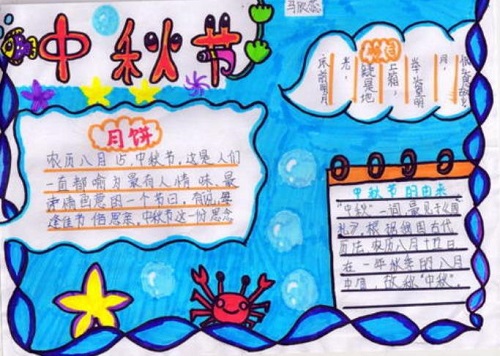 中秋节
月饼
农历八月15,中秋节,这是人们
一直都喻为最有人情味、最
情画意的一个节日,有说,每
逢佳节倍思亲。中秋节这一份思念
床前明月
光,
疑是地
上霜,
举头望明
月,
中秋节的由来
"中秋"一词,最见于《周
礼》,根据我国古代
历法,农历八月十五日,
在一年秋季的八月
中旬,故称"中秋"。